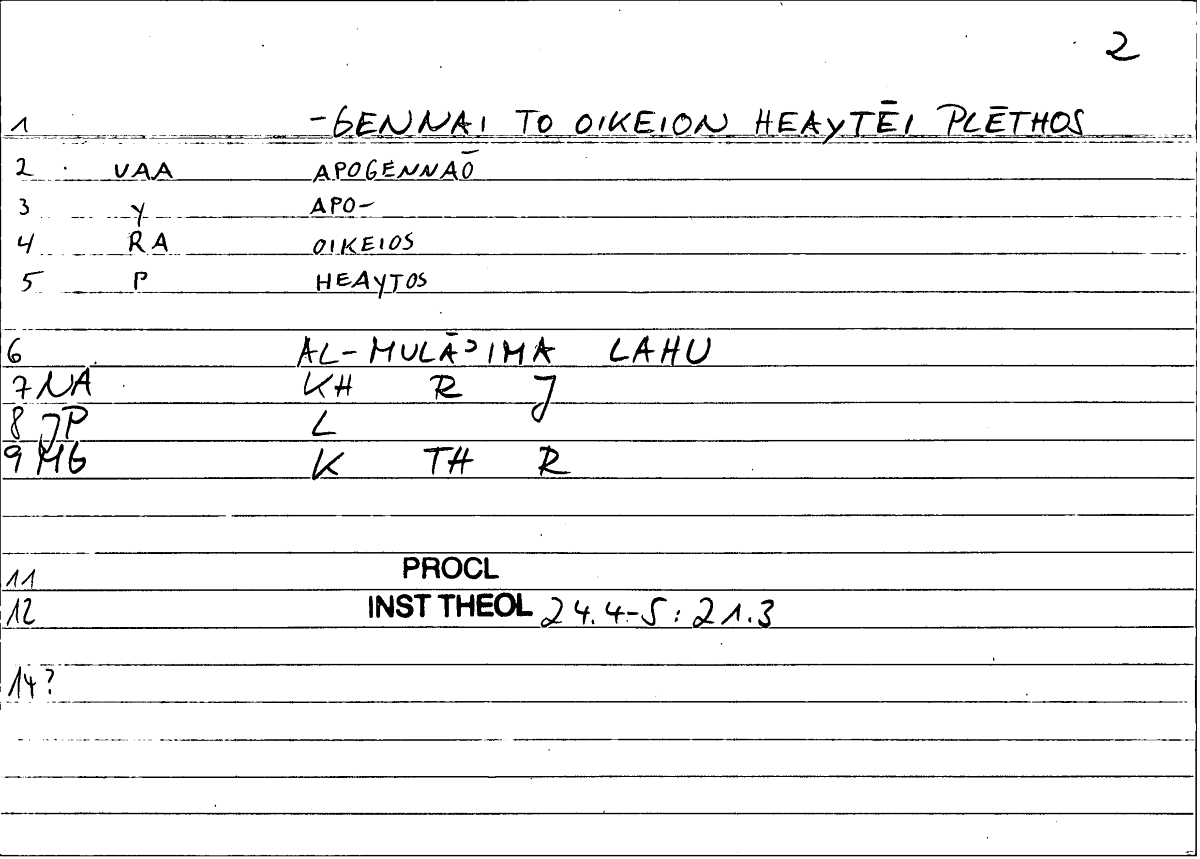 2
1 -GENNAI TO OIKEION HEAYTĒI PLĒTHOS
2 VAA APOGENNAŌ
3 Y APO-
4 RA OIKEIOS
5 P HEAYTOS
6 AL-MULĀʾIMA LAHU
7 NA KH R J
8 JP L
9 MG K TH R
11 PROCL
12 INST THEOL 24.4-5: 21.3
14?